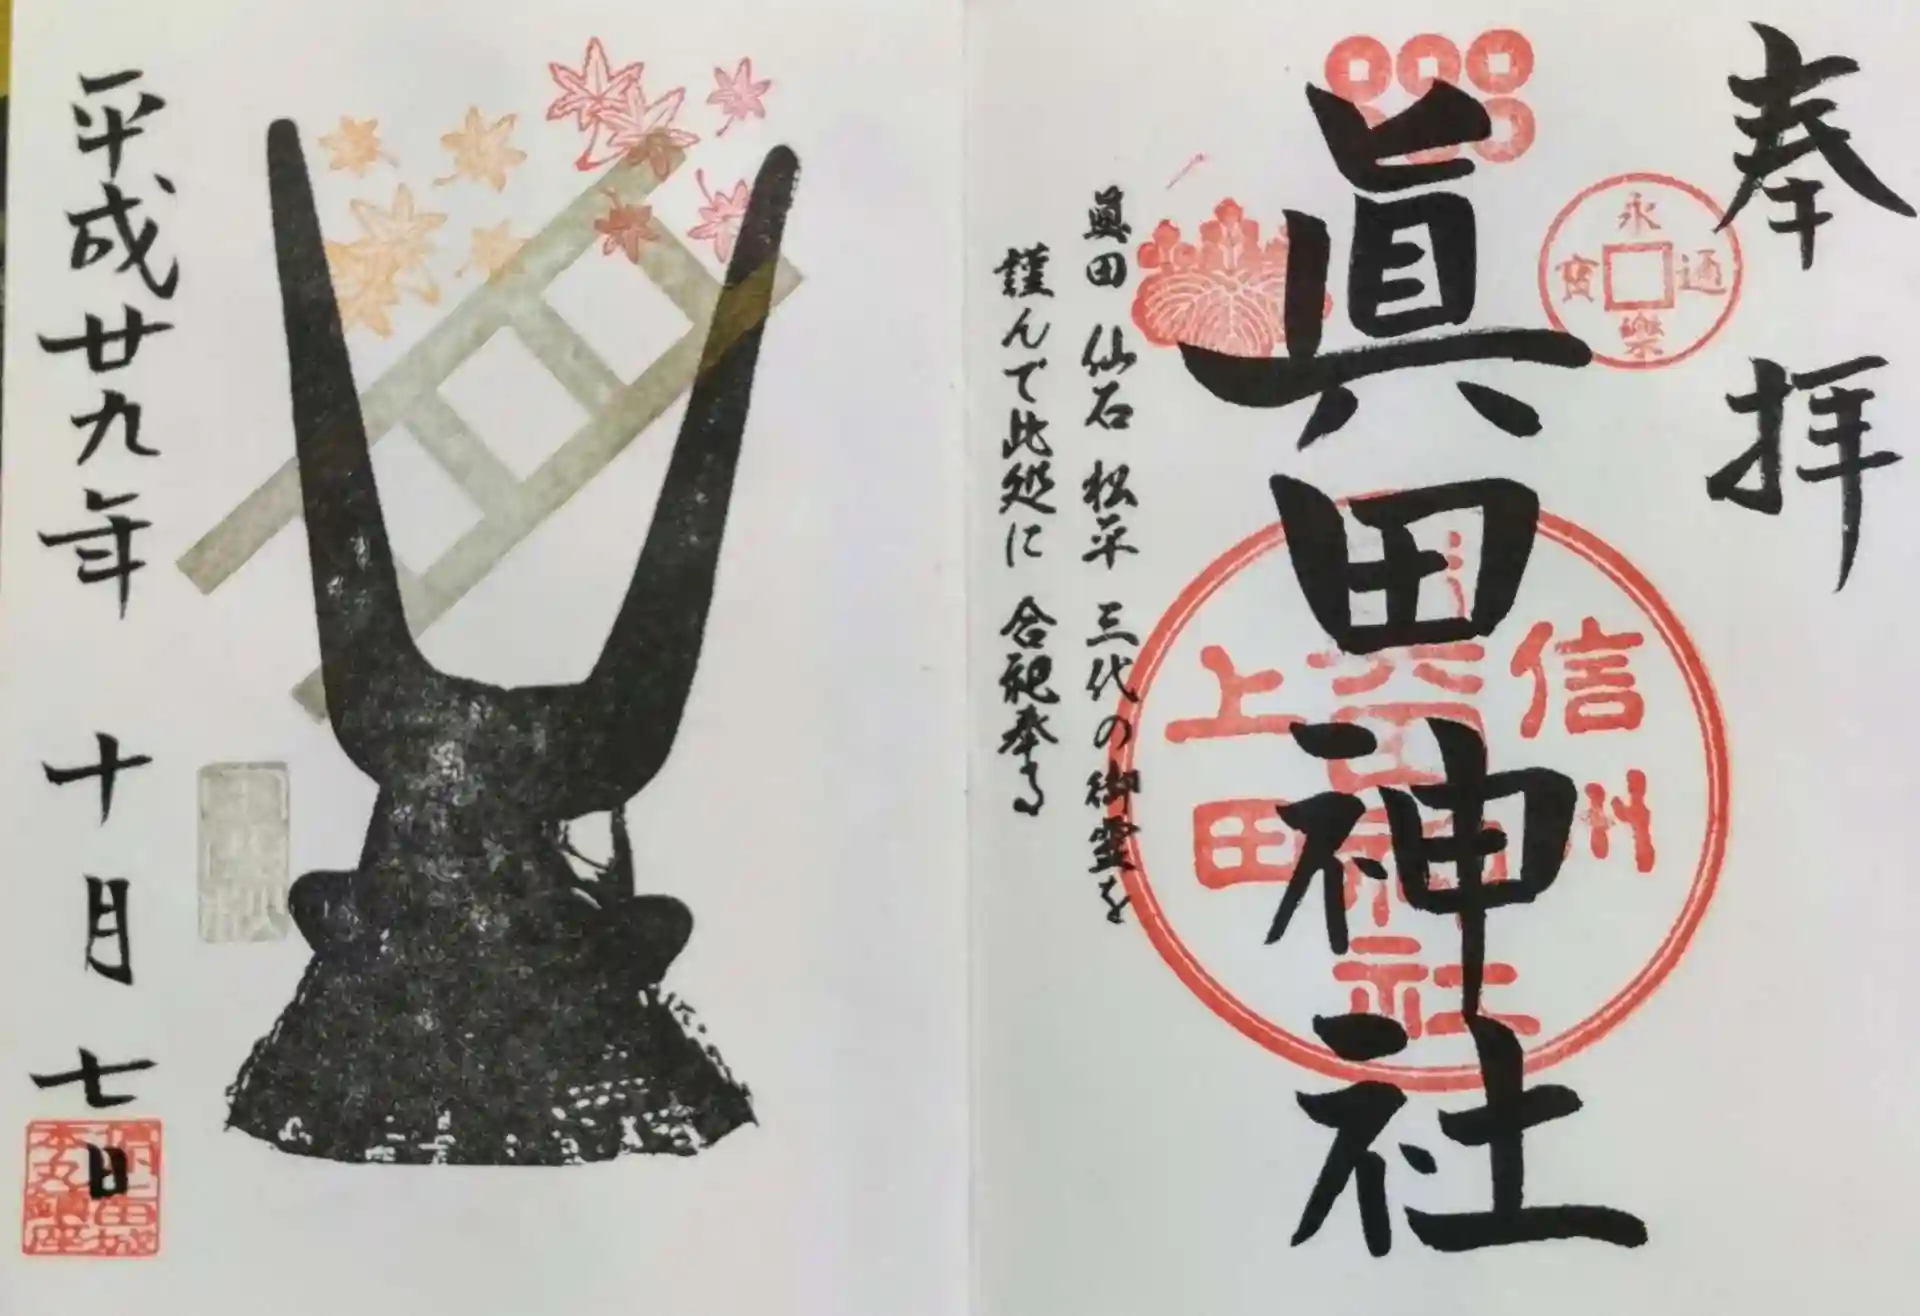 奉拝
眞田神社
永樂通寳
信州
上田
眞田神社
眞田 仙石 松平 三代の御霊を
謹んで此処に 合祀奉る
平成廿九年 十月 七日
上田城
本丸鎮座